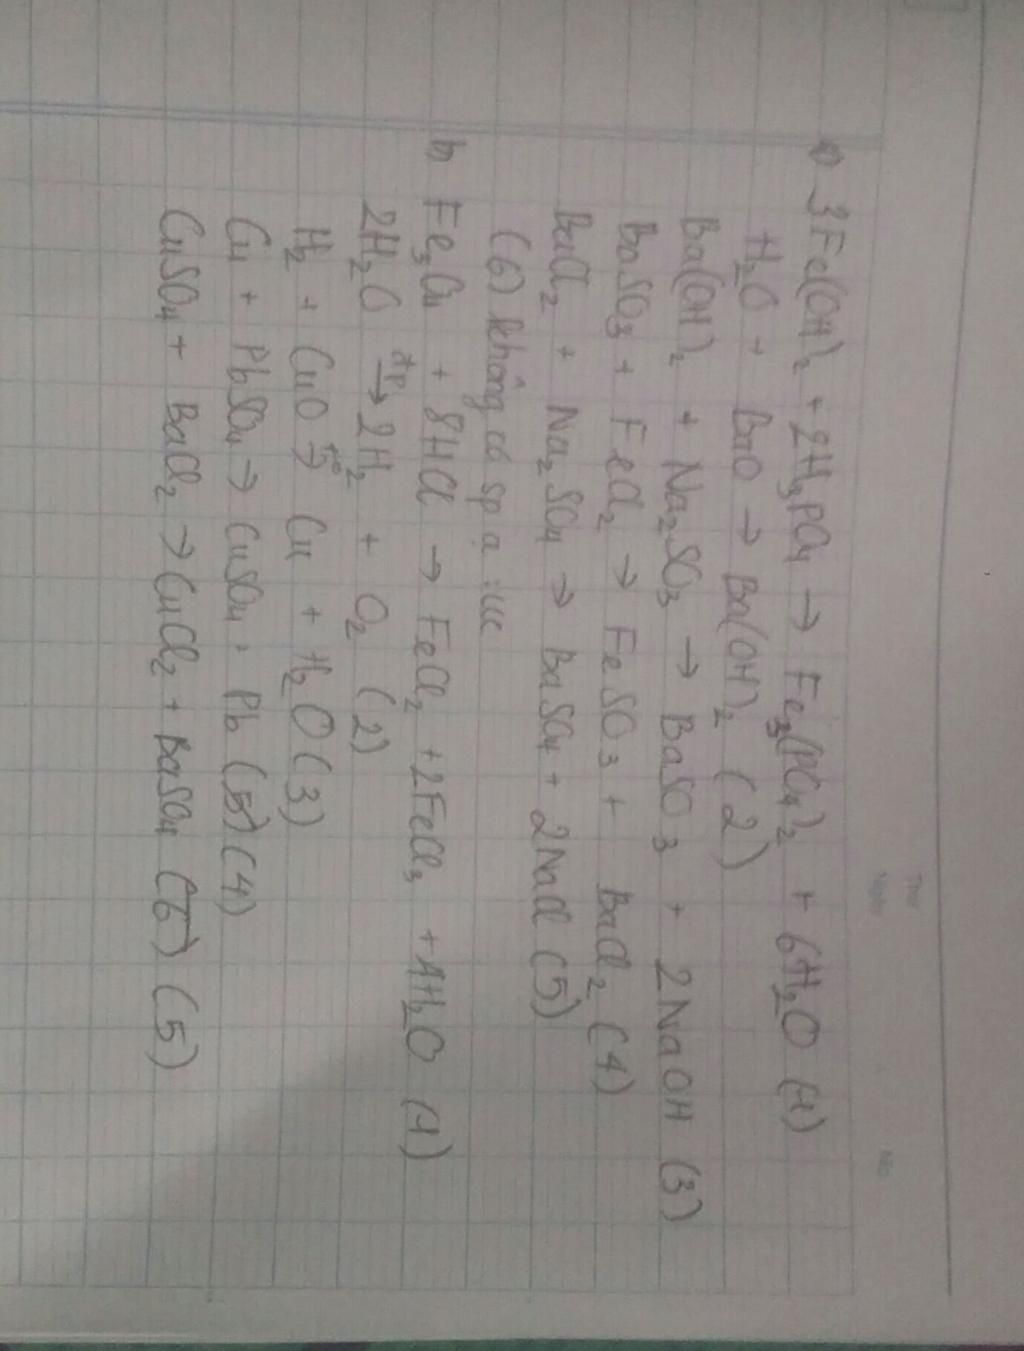 a) 3Fe(OH)₂ + 2H₃PO₄ → Fe₃(PO₄)₂ + 6H₂O (1)
H₂O + BaO → Ba(OH)₂ (2)
Ba(OH)₂ + Na₂SO₃ → BaSO₃ + 2NaOH (3)
BaSO₃ + FeCl₂ → FeSO₃ + BaCl₂ (4)
BaCl₂ + Na₂SO₄ → BaSO₄ + 2NaCl (5)
(6) không có sp ạ :((
b) Fe₃O₄ + 8HCl → FeCl₂ + 2FeCl₃ + 4H₂O (1)
2H₂O đp→ 2H₂ + O₂ (2)
H₂ + CuO t°→ Cu + H₂O (3)
Cu + PbSO₄ → CuSO₄ + Pb (5) (4)
CuSO₄ + BaCl₂ → CuCl₂ + BaSO₄ (6) (5)